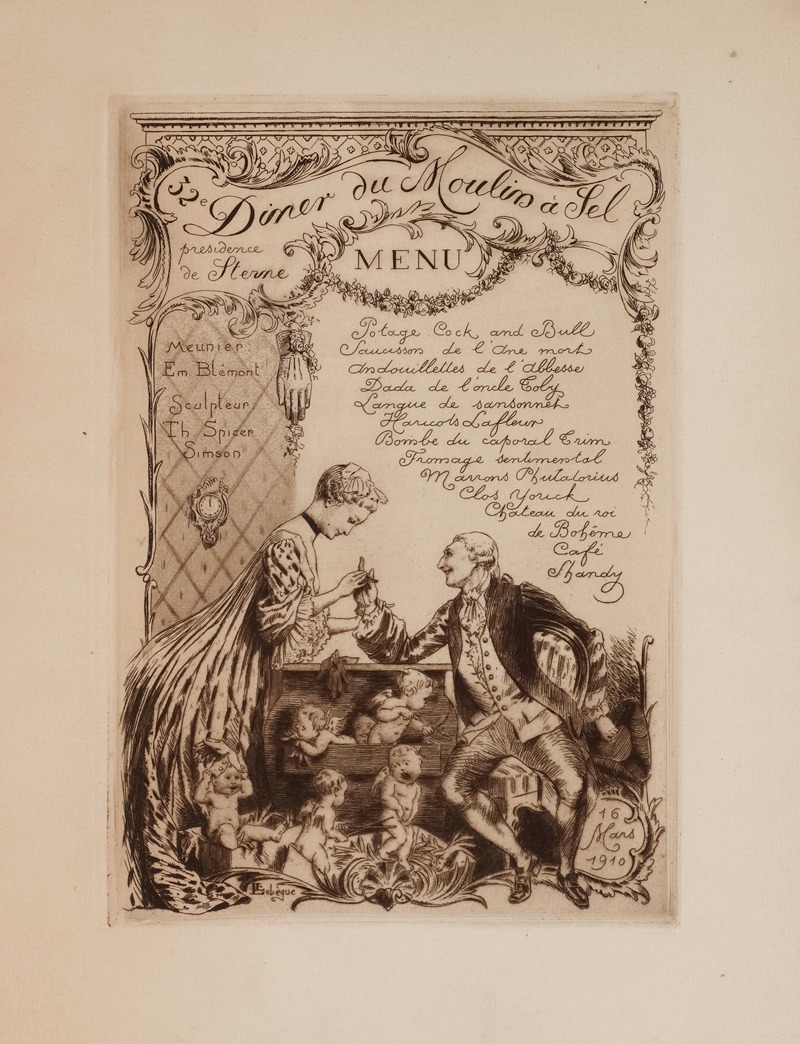 32e Diner du Moulin à Sel
présidence
de Sterne
MENU
Meunier:
Em Blémont
Sculpteur:
Th. Spicer
Simson
Potage Cock and Bull
Saucisson de l'Ane mort
Andouillettes de l'Abbesse
Dada de l'oncle Toby
Langue de sansonnet
Haricots Lafleur
Bombe du caporal Trim
Fromage sentimental
Marrons Phutatorius
Clos Yorick
Château du roi
de Bohême
Café
Shandy
16
Mars
1910
L Lebègue